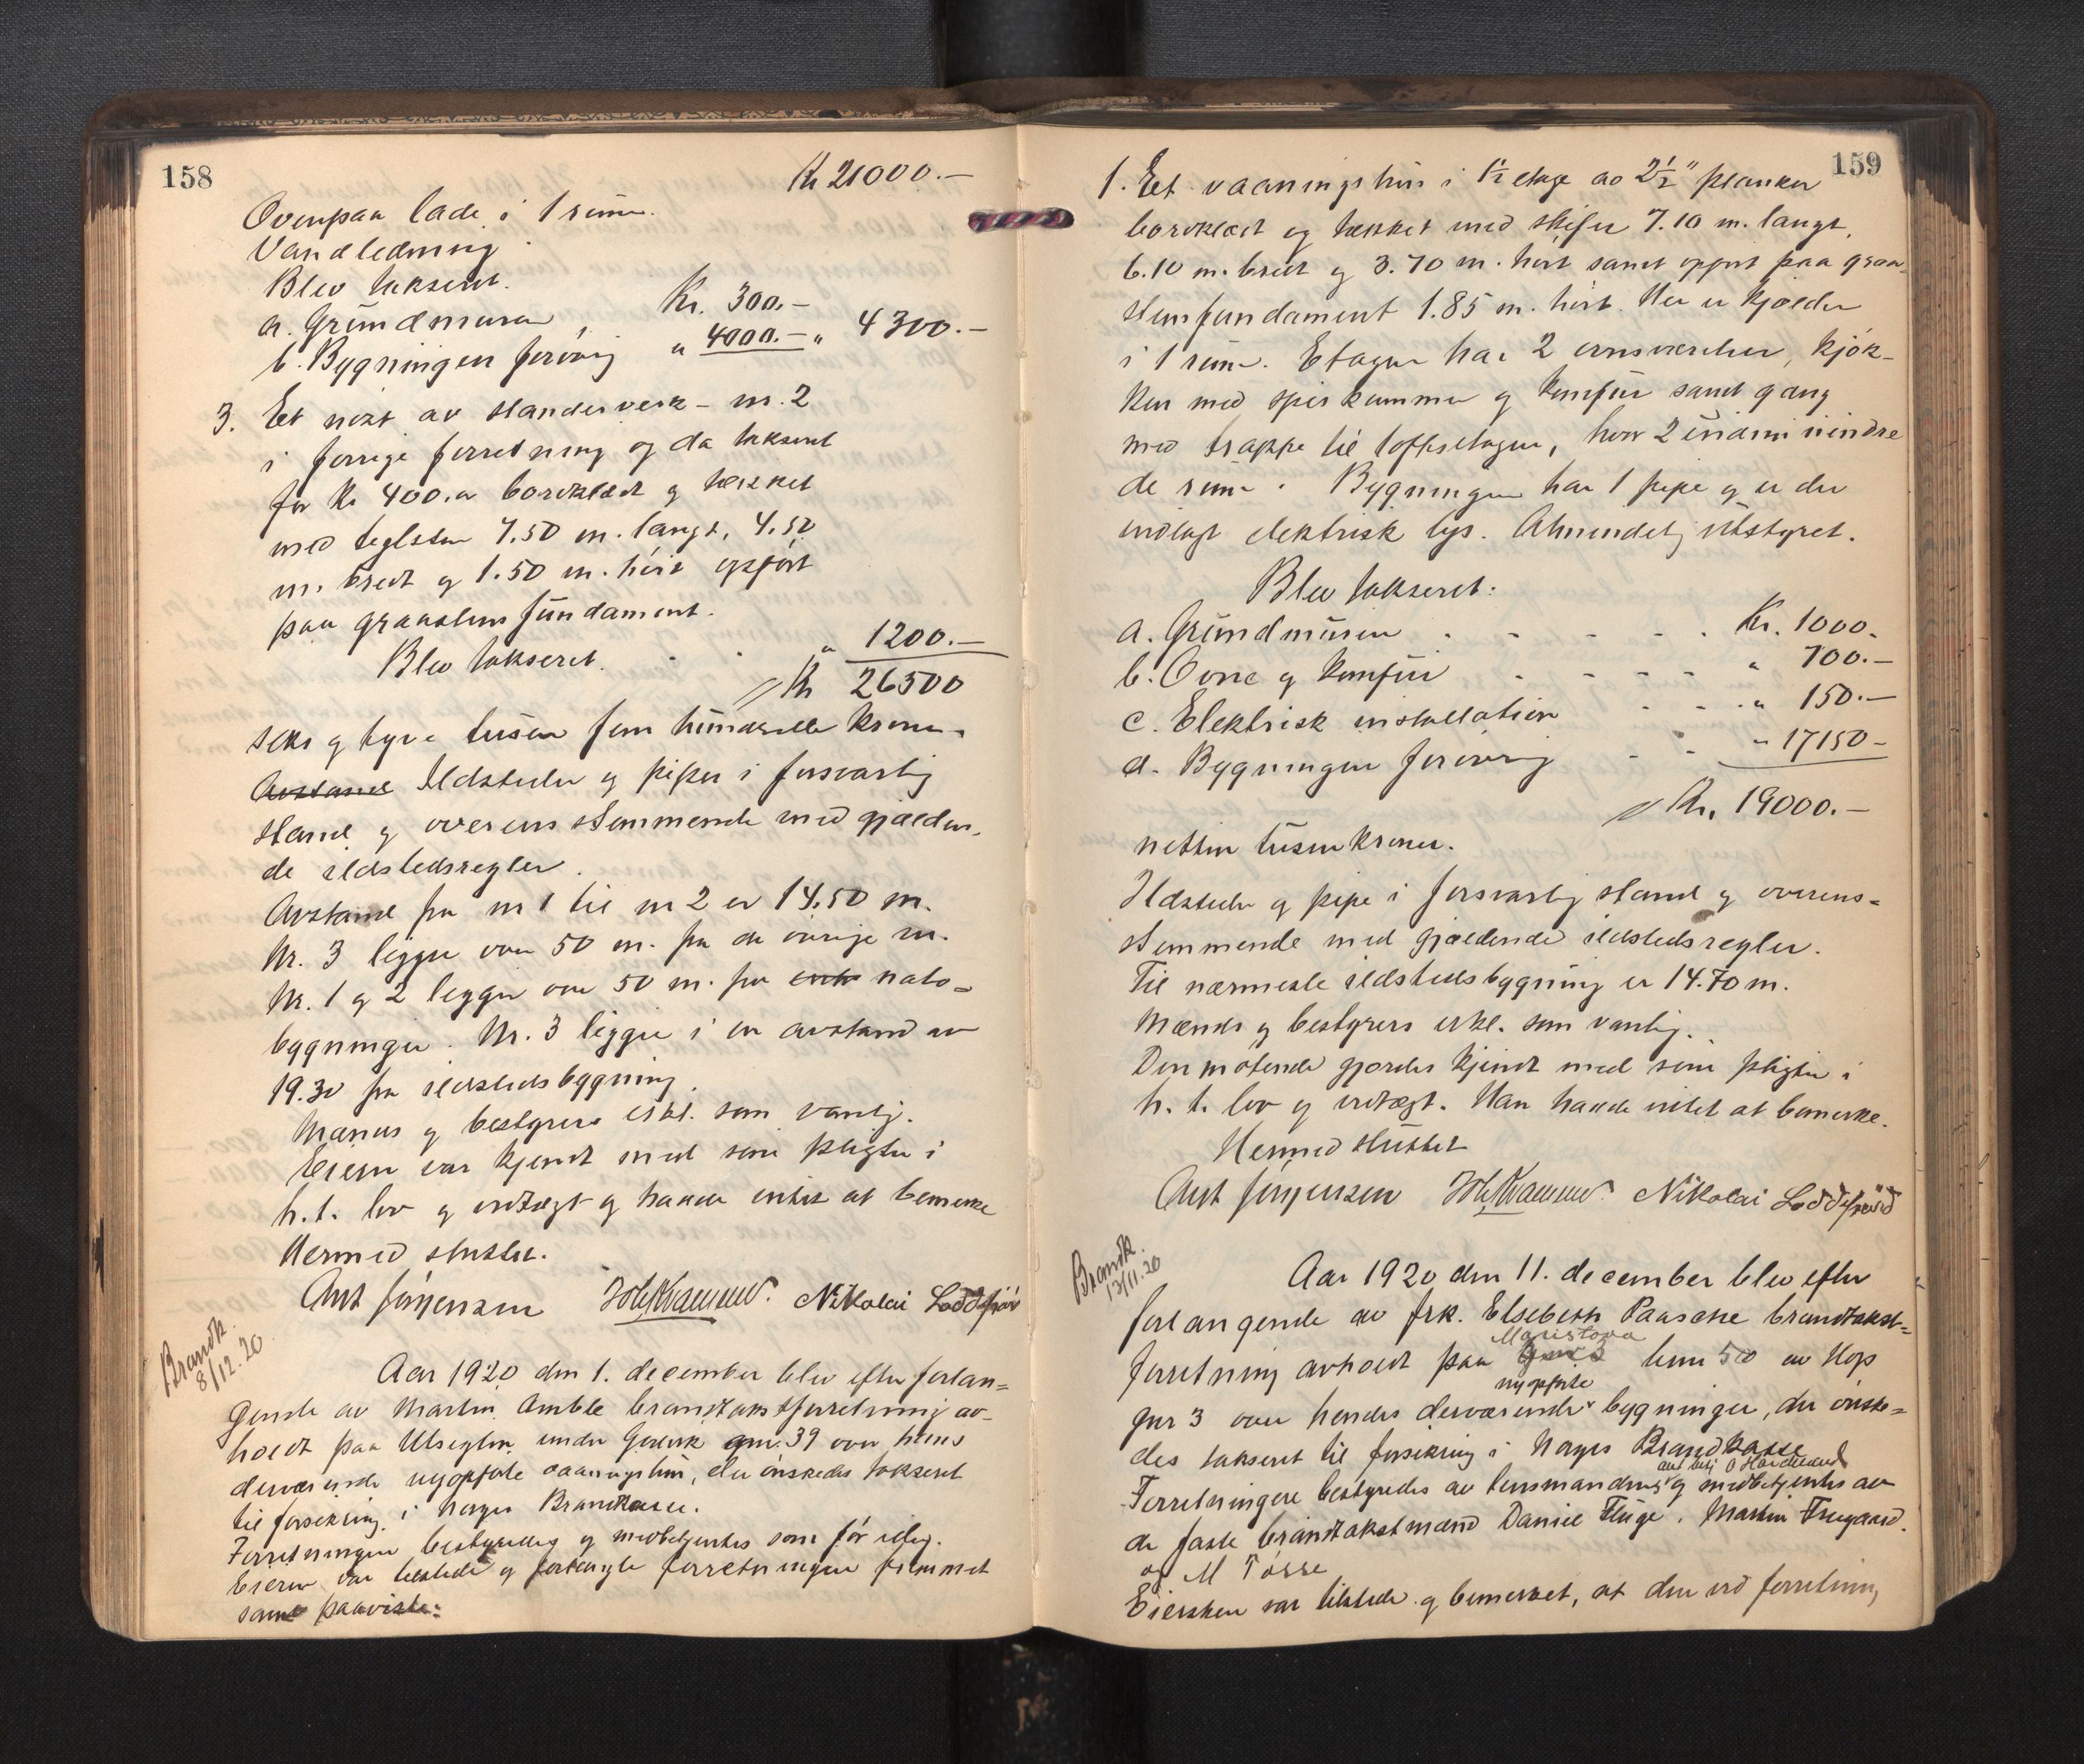 158
Kr 21000.-
Ovenpaa lade i 1 rum.
Vandledning.
Blev takseret.
a. Grundmuren Kr. 300.-
b. Bygningen forøvrig " 4000.- " 4300.-
3. Et nøst av standerverk - nr. 2
i forrige forretning og da takseret
for Kr 400.- bordklædt og tækket
med teglsten 7.50 m. langt, 4.50
m. bredt og 1.50 m. høit opført
paa graastensfundament.
Blev takseret. " 1200.-
Kr 26500
seks og tyve tusen fem hundrede kroner.
Avstand Ildsteder og piper i forsvarlig
stand og overensstemmende med gjælden-
de ildstedsregler.
Avstand fra nr 1 til nr 2 er 14.50 m.
Nr. 3 ligger over 50 m. fra de øvrige nr.
Nr. 1 og 2 ligger over 50 m. fra nabo-
bygninger. Nr. 3 ligger i en avstand av
19.30 fra ildstedsbygning.
Mænds og bestyrers erkl. som vanlig.
Eieren var kjendt med sine pligter i
h. t. lov og vedtægt og hadde intet at bemerke
Hermed sluttet.
Ant Jørgensen Nikolai Loddefjord
Brandk.
8/12.20
Aar 1920 den 1. december blev efter forlan-
gende av Martin Amble brandtakstforretning av-
holdt paa under gnr. 39 over hans
derværende nyopførte vaaningshus, der ønskedes takseret
til forsikring i Norges Brandkasse.
Forretningen bestyredes og medbetjentes som før idag.
Eieren var tilstede og forlangte forretningen fremmet
samt paaviste:
159
1. Et vaaningshus i 1½ etage av 2½" planker
bordklædt og tækket med skifer 7.10 m. langt,
6.10 m. bredt og 3.70 m. høit samt opført paa graa-
stensfundament 1.85 m. høit. Her er kjælder
i 1 rum. Etagen har 2 ernsværelser, kjøk-
ken med spiskammer og komfur samt gang
med trappe til loftsetagen, hvor 2 uindrede
de rum. Bygningen har 1 pipe og er der
indlagt elektrisk lys. Almindelig utstyret.
Blev takseret:
a. Grundmuren . - - - . Kr. 1000.
b. Ovne og komfur . - - - - " 700.-
c. Elektrisk installation . - - " 150.-
d. Bygningen forøvrig - - " 17150-
Kr. 19000.-
nitten tusen kroner.
Ildsteder og pipe i forsvarlig stand og overens-
stemmende med gjældende ildstedsregler.
Til nærmeste ildstedsbygning er 14.70 m.
Mænds og bestyrers erkl. som vanlig.
Den møtende gjordes kjendt med sine pligter i
h. t. lov og vedtægt. Han hadde intet at bemerke.
Hermed sluttet
Ant Jørgensen Nikolai Loddefjord
Brandk.
13/11.20
Aar 1920 den 11. december blev efter
forlangende av frk. Elsebeth Paasche brandtakst-
Maristova
forretning avholdt paa bnr 50 av Hop
nyopførte
gnr 3 over hendes derværende bygninger, der ønske-
des takseret til forsikring i Norges Brandkasse
Forretningen bestyredes av lensmanden og medbetjentes av
de faste brandtakstmænd Daniel Fluge, Martin
og M Tøsse
Eiersken var tilstede og bemerket, at den ved forretning